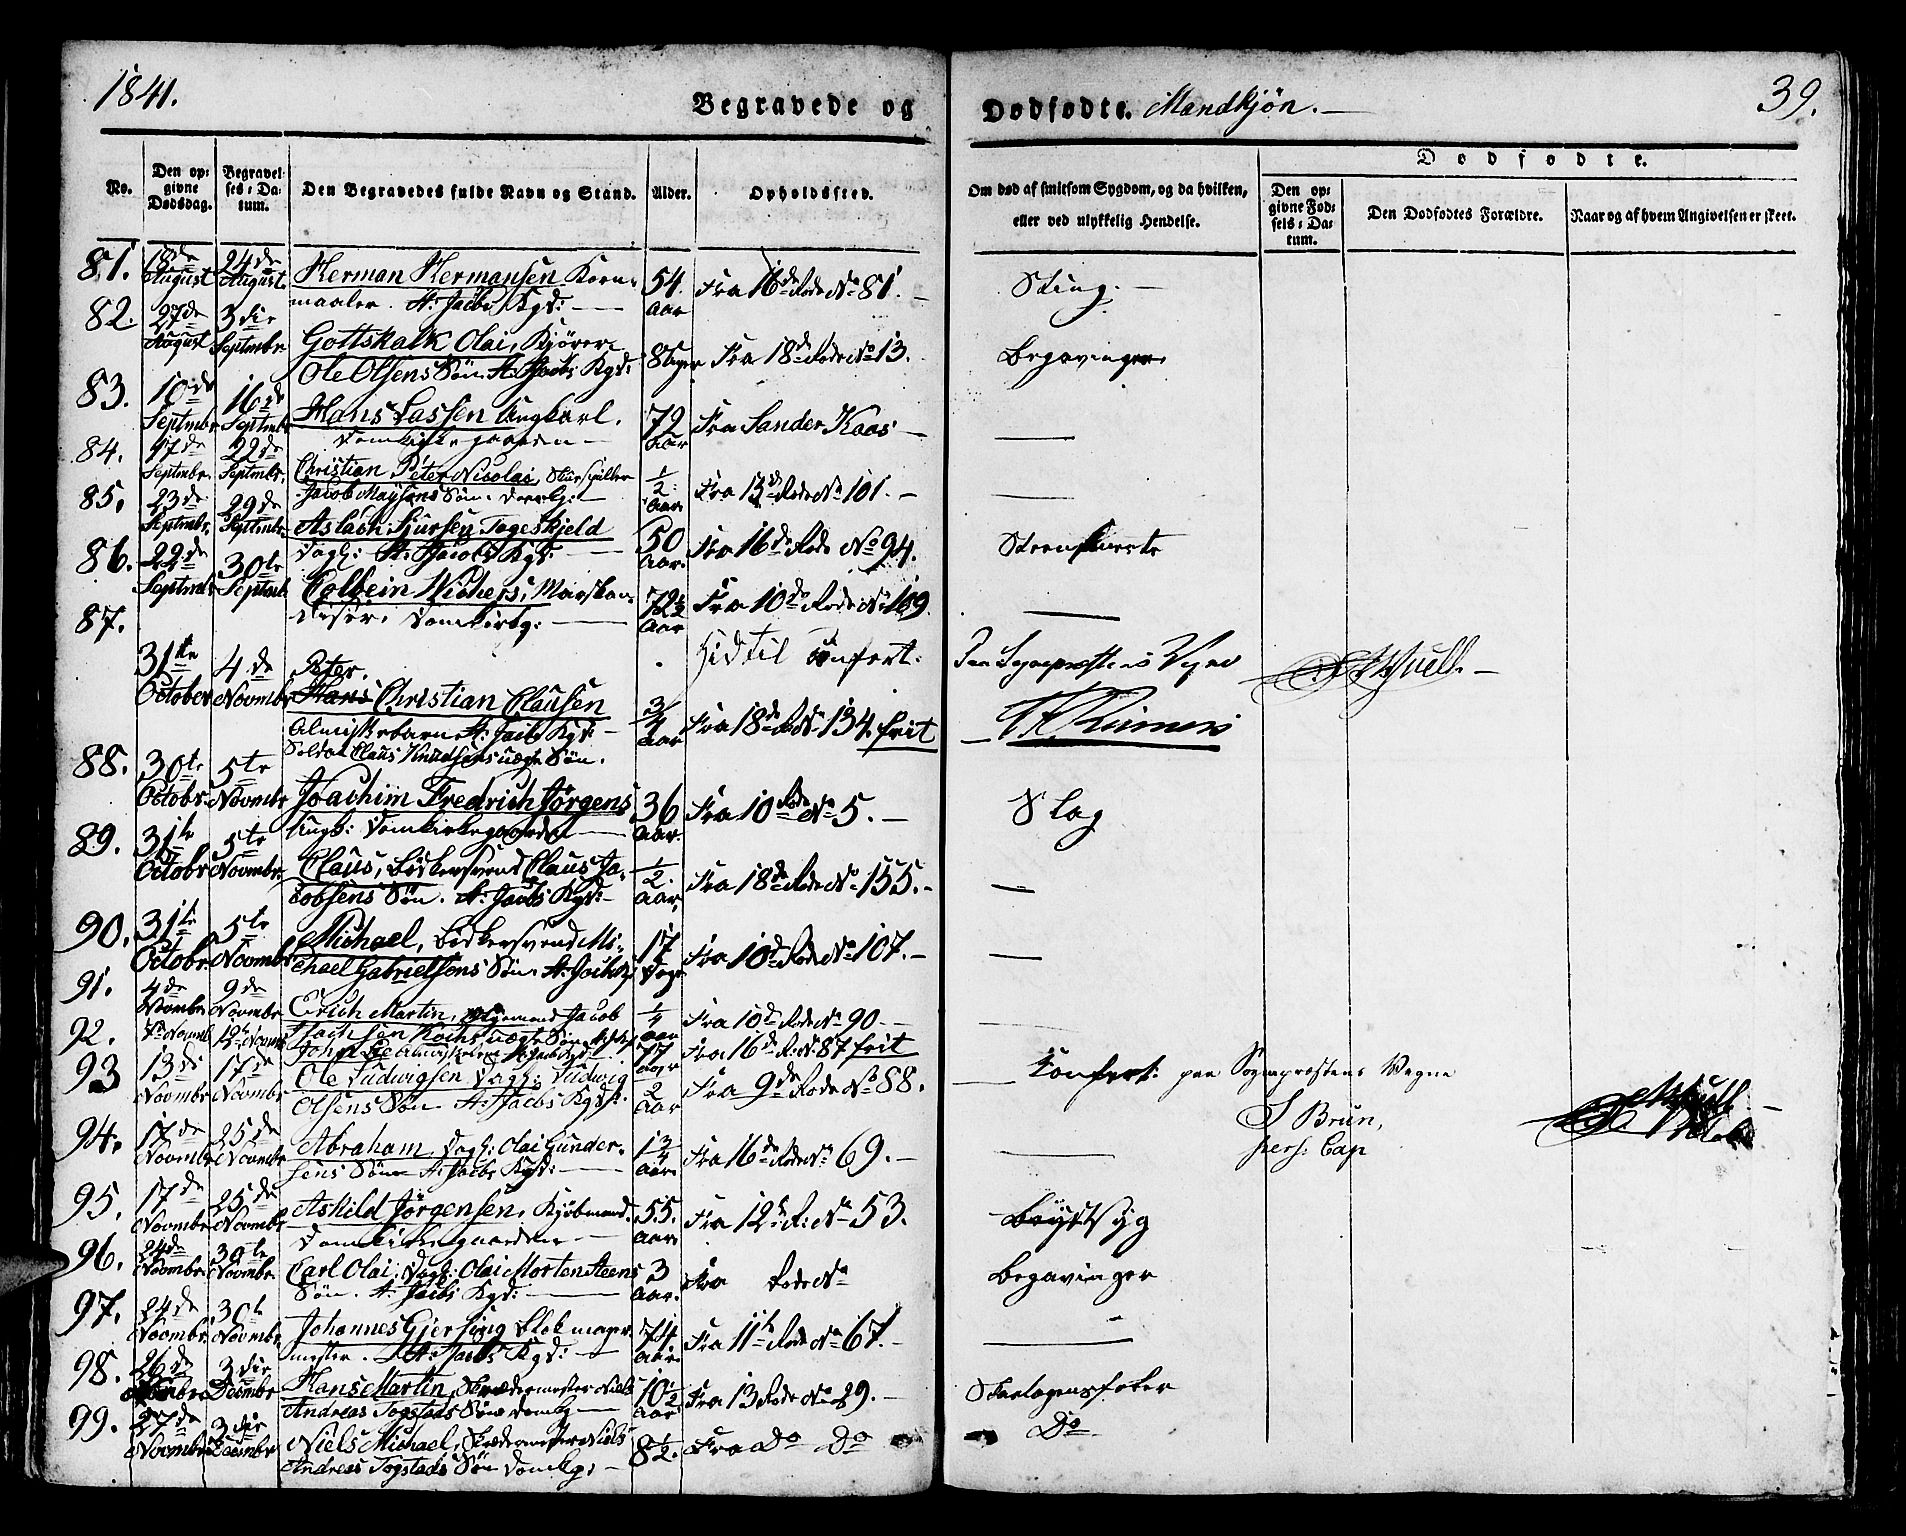 1841.
Begravede og
Dødfødte. Mandkjøn.
39.
No.
Den opgivne Dødsdag.
Begravelses-Datum.
Den Begravedes fulde Navn og Stand.
Alder.
Opholdssted.
Om død af smitsom Sygdom, og da hvilken,
eller ved ulykkelig Hendelse.
Dødfødte.
Den opgivne Fødsels-Datum.
Den Dødfødtes Forældre.
Naar og af hvem Angivelsen er skeet.
81. 18de August 24de August. Herman Hermansen Korn-
maaler. St: Jacobs Kgd: 54. Aar Fra 16de Rode No 81. Sting.
82. 27de August 3die Septembr. Gottskalk Olai, Kjører
Ole Olsens Søn St: Jacobs Kgd: 8 Uger Fra 18de Rode No 13. Begavinger
83. 10de Septmbr 16de Septmbr Hans Lassen Ungkarl.
Domkirkegaarden 79 Aar Fra Sander Kaas
84. 17de Septmbr. 22de Septmbr. Christian Peter Nicolai,
Jacob Søn. 1/2 Aar. Fra 13de Rode No 101.
85. 23de Septmbr. 29de Septmbr. Aslach Sjursen Tageskjeld
Dagl: St: Jacobs Kgd: 50 Aar. Fra 16de Rode No 94.
86. 22de Septmbr 30te Septmbr Colbein Wichers,
Domkirkg: 72 1/2 Aar Fra 10de Rode No 109.
Hidtil Confert:
Paa Sognepræstens Vegne
87. 31te October 4de Novmbr Peter.
Hans Christian Clausen
Almisbarn St: Jacobs Kgd:
Soldat Claus Knudsens uægte Søn. 3/4 Aar Fra 18de Rode No 134. frit
88. 30te Octobr 5te Novmbr Joachim Fredrich Jørgens
Ungk: Domkirkegaarden 36 Aar. Fra 10 Rode No 5. Slag
89. 31te Octobr 5te Novmbr Claus, Bødkersvend Claus Ja-
cobsens Søn. St: Jacobs Kgd: 1/2 Aar. Fra 18de Rode No 155.
90. 31te Octobr 5te Novmbr Michael, Bødkersvend Mi-
chael Gabrielsens Søn St: Jacobs 17 Dage Fra 10de Rode No 107.
91. 4de Novmbr. 9de Novmbr. Erich Martin, Jacob
Kochs uægte Søn 1/4 Aar Fra 10de Rode No 90
92. 7de Novmbr 12te Novmbr Johan 77 Aar Fra 16de R: No 87 frit
93 13de Novmbr 17de Novmbr Ole Ludwigsen Dagl: Ludwig
Olsens Søn St: Jacobs Kgd: 2 Aar Fra 9de Rode No 88.
Confert: paa Sognepræstens Vegne
J Brun,
pers: Cap
94. 17de Novmbr 25de Novmbr Abraham Dagl: Olai Gunder-
sens Søn St: Jacobs Kgd: 1 3/4 Aar. Fra 16de Rode No 69.
95. 17de Novmbr 25de Novmbr Askild Jørgensen, Kjøbmand.
Domkirkegaarden 55. Aar. Fra 12te R: No 53. Brystsyg
96. 24de Novmbr 30te Novmbr. Carl Olai, Dagl: Olai Morten Steens
Søn. St: Jacobs Kgd: 3 Aar. Fra Rode No Begavinger
97. 24de Novmbr. 30te Novmbr. Johannes Gjersing Blokmager-
mester. St: Jacobs Kgd: 74 Aar. Fra 11te Rode No 67.
98. 26de Novmbr 3die Decmbr Hans Martin, Skrædermester Niels
Andreas Togstads Søn Domkg: 10 1/2 Aar. Fra 13 Rode No 29. Skarlagensfeber
99. 27de Novmbr 3die Decmbr Niels Michael, Skrædermester Niels
Andreas Togstads Søn Domkg: 8 1/2. Fra Do Do Do